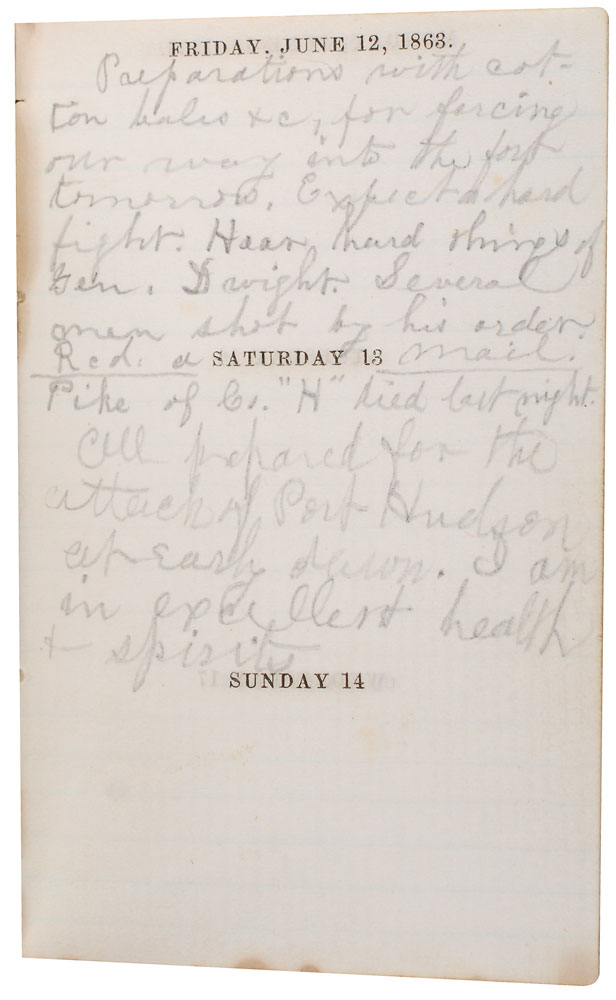 FRIDAY, JUNE 12, 1863.
Preparations with cot-
ton bales &c, for forcing
our way into the fort
tomorrow. Expect a hard
fight. Hear hard things of
Gen. Dwight. Several
men shot by his order.
Rcd. a mail.
SATURDAY 13
Pike of Co. "H" died last night.
All prepared for the
attack of Port Hudson
at early dawn. I am
in excellent health
+ spirits
SUNDAY 14